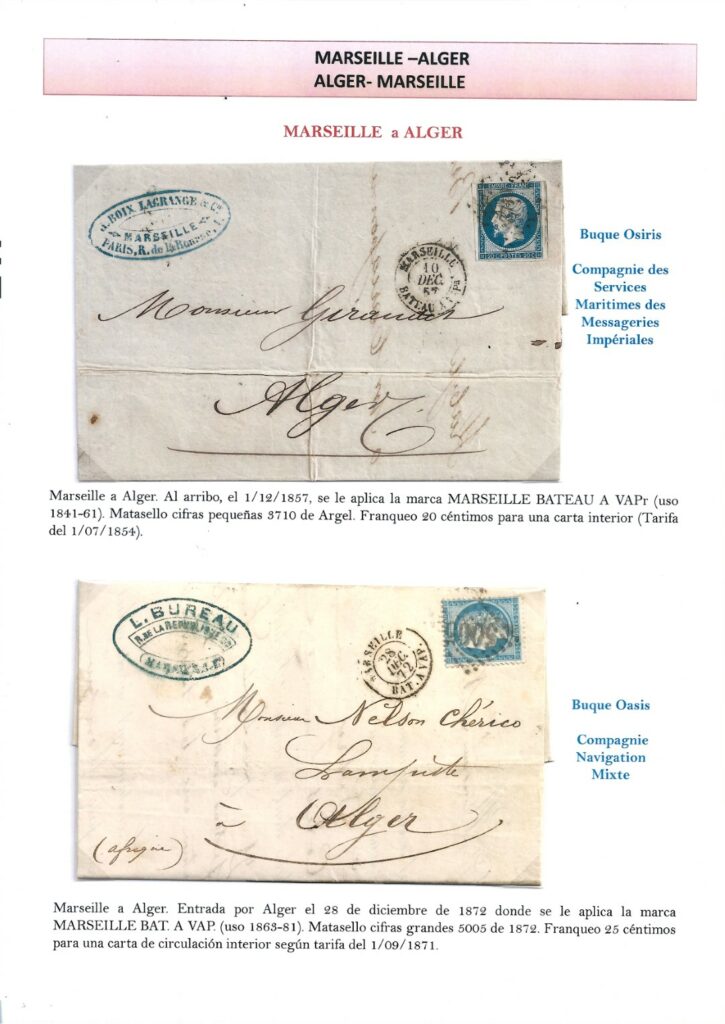 MARSEILLE –ALGER
ALGER- MARSEILLE
MARSEILLE a ALGER
J. BOIX LAGRANGE & Cie
MARSEILLE
PARIS, R. de la
EMPIRE FRANC
20 C POSTES 20 C
MARSEILLE
10
DEC.
57
BATEAU A VAPr
Monsieur
Alger
Buque Osiris
Compagnie des
Services
Maritimes des
Messageries
Impériales
Marseille a Alger. Al arribo, el 1/12/1857, se le aplica la marca MARSEILLE BATEAU A VAPr (uso
1841-61). Matasello cifras pequeñas 3710 de Argel. Franqueo 20 céntimos para una carta interior (Tarifa
del 1/07/1854).
L. BUREAU
R. DE LA REPUBLIQUE
MARSEILLE
MARSEILLE
28
DEC
72
BAT. A VAP.
5005
Monsieur Nelson Chérico
à Alger
(afrique)
Buque Oasis
Compagnie
Navigation
Mixte
Marseille a Alger. Entrada por Alger el 28 de diciembre de 1872 donde se le aplica la marca
MARSEILLE BAT. A VAP. (uso 1863-81). Matasello cifras grandes 5005 de 1872. Franqueo 25 céntimos
para una carta de circulación interior según tarifa del 1/09/1871.